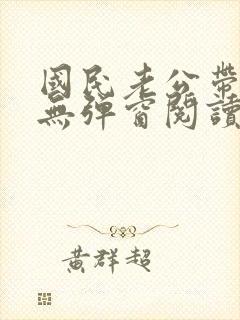 國民老公帶
無彈窗閱讀
黃群超